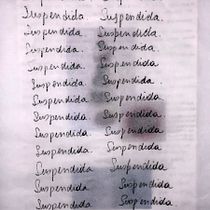 Suspendida Suspendida.
Suspendida. Suspendida.
Suspendida. Suspendida.
Suspendida. Suspendida.
Suspendida. Suspendida.
Suspendida. Suspendida.
Suspendida. Suspendida.
Suspendida. Suspendida.
Suspendida Suspendida.
Suspendida Suspendida.
Suspendida Suspendida
Suspendida Suspendida